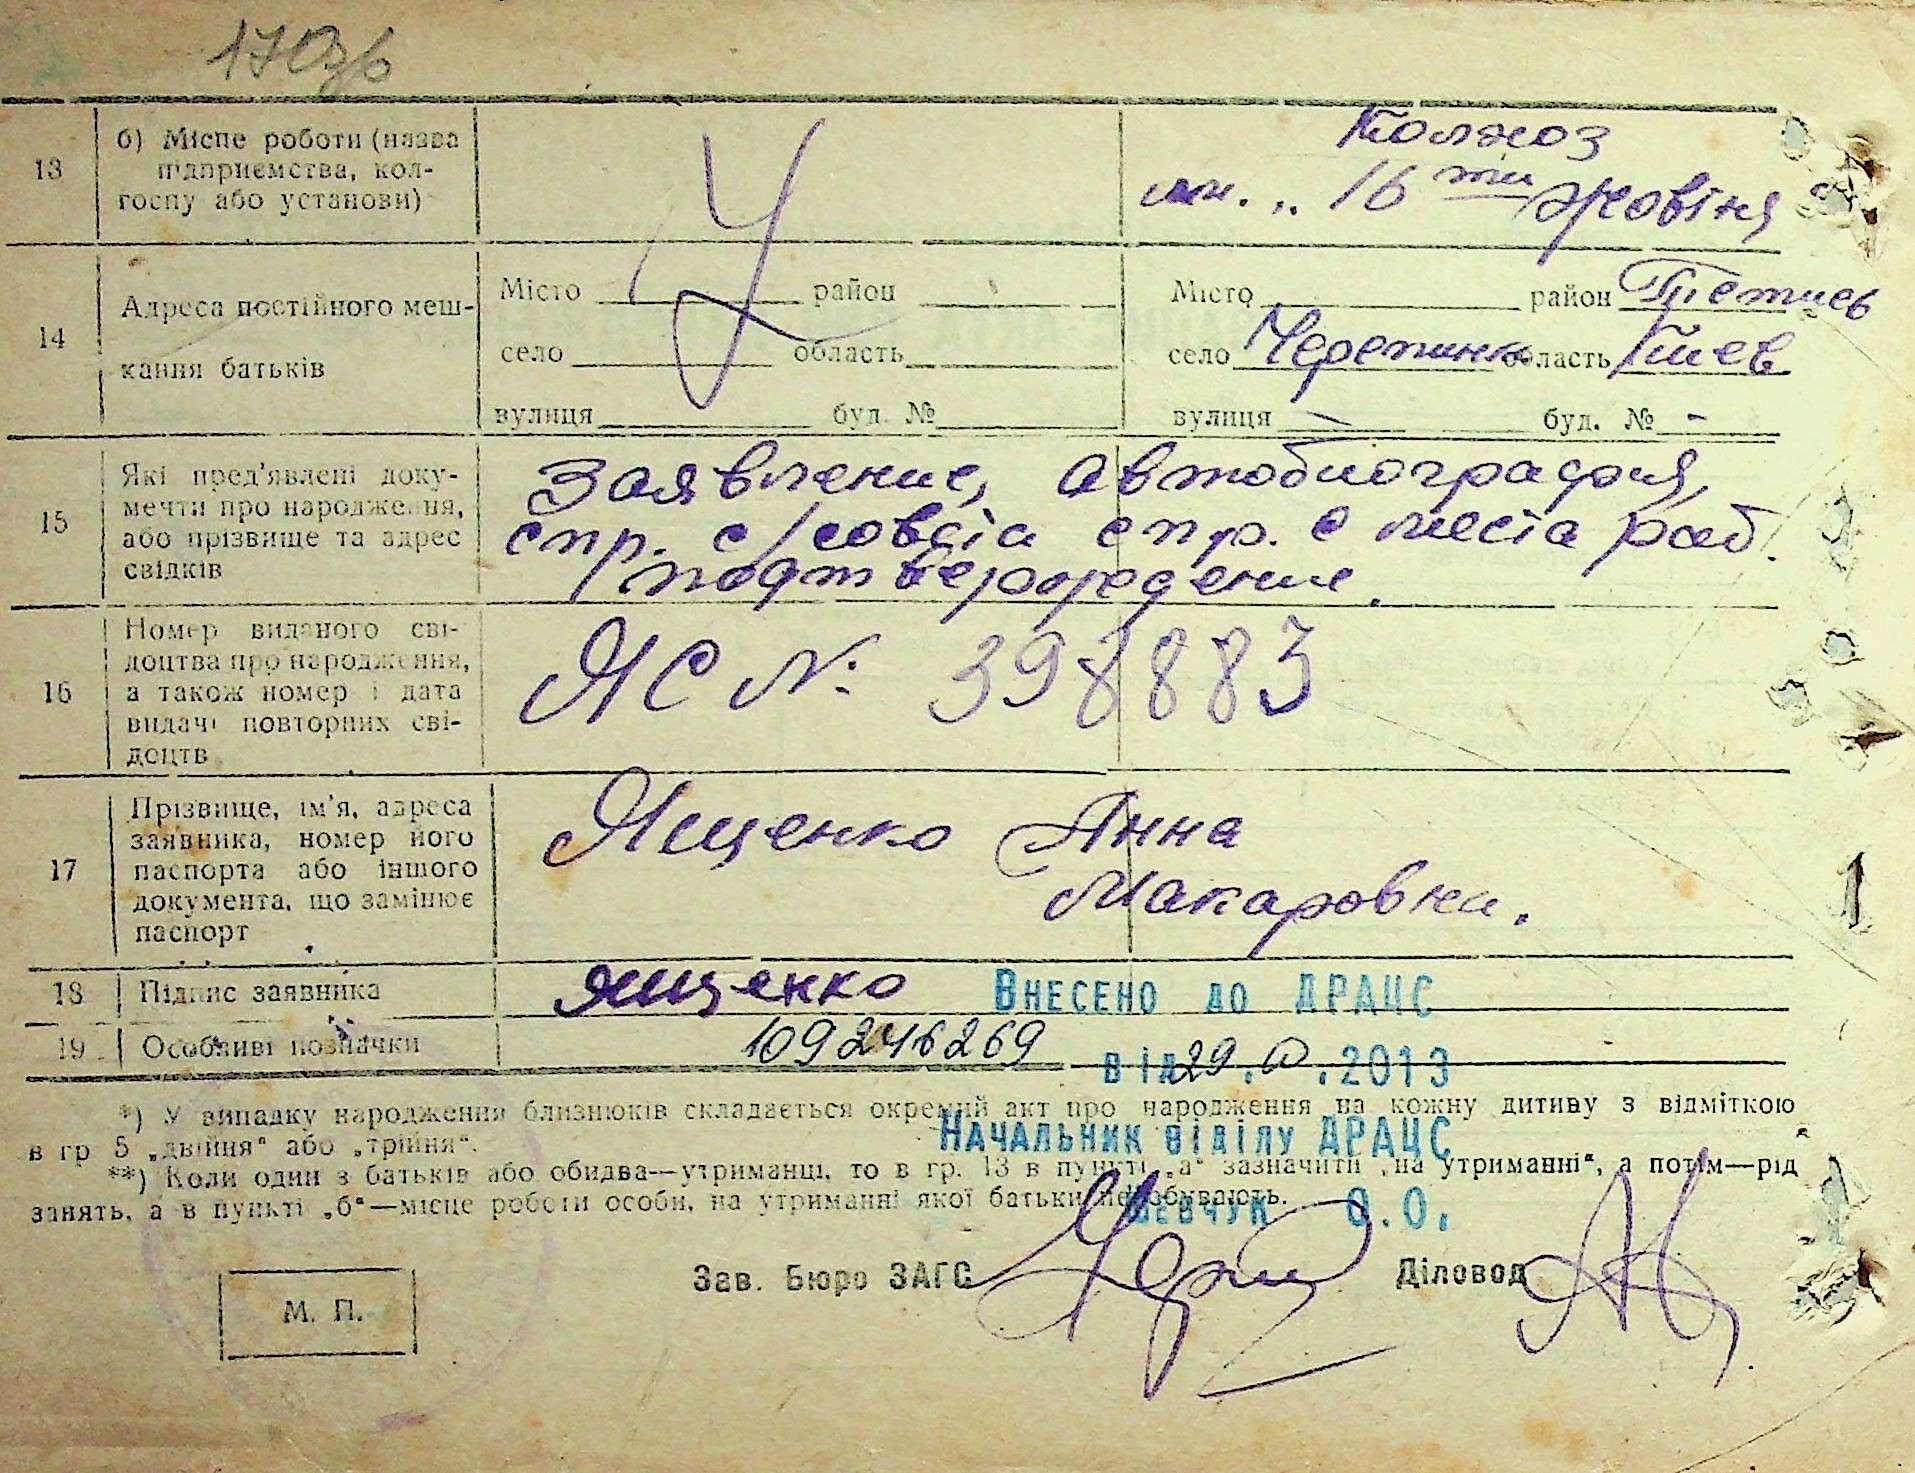 170зв
13
б) Місце роботи (назва
підприємства, кол-
госпу або установи)
Колхоз
им. „ 16 ти жовтня
14
Адреса постійного меш-
кання батьків
Місто район
село область
вулиця буд. №
Місто район Тетиев
село Черепинк область Киев
вулиця — буд. № -
15
Які пред'явлені доку-
менти про народження,
або прізвище та адрес
свідків
Заявление, автобиография,
спр. с/совета спр. с места раб.
подтверждение.
16
Номер виданого сві-
доцтва про народження,
а також номер і дата
видачі повторних сві-
доцтв
ЯС №: 398883
17
Прізвище, ім'я, адреса
заявника, номер його
паспорта або іншого
документа, що замінює
паспорт
Ященко Анна
Макаровна.
18
Підпис заявника
Ященко
Внесено до ДРАЦС
19
Особливі позначки
109246269
від 29. .2013
*) У випадку народження близнюків складається окремий акт про народження на кожну дитину з відміткою
в гр 5 „двійня“ або „трійня“.
Начальник відділу ДРАЦС
**) Коли один з батьків або обидва—утриманці, то в гр. 13 в пункті „а“ зазначити „на утриманні“, а потім—рід
занять, а в пункті „б“—місце роботи особи, на утриманні якої батьки перебувають.
Шевчук О.О.
Зав. Бюро ЗАГС
Діловод
М. П.